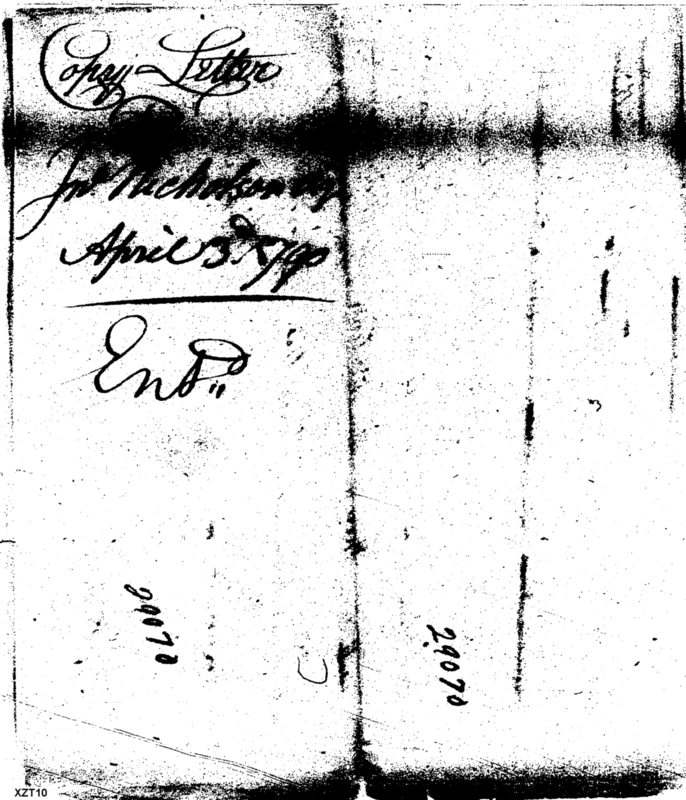 Copy Letter
Jnº Nicholson esq
April 3.d 1790
Entd
29070
29070
C
3
XZT10